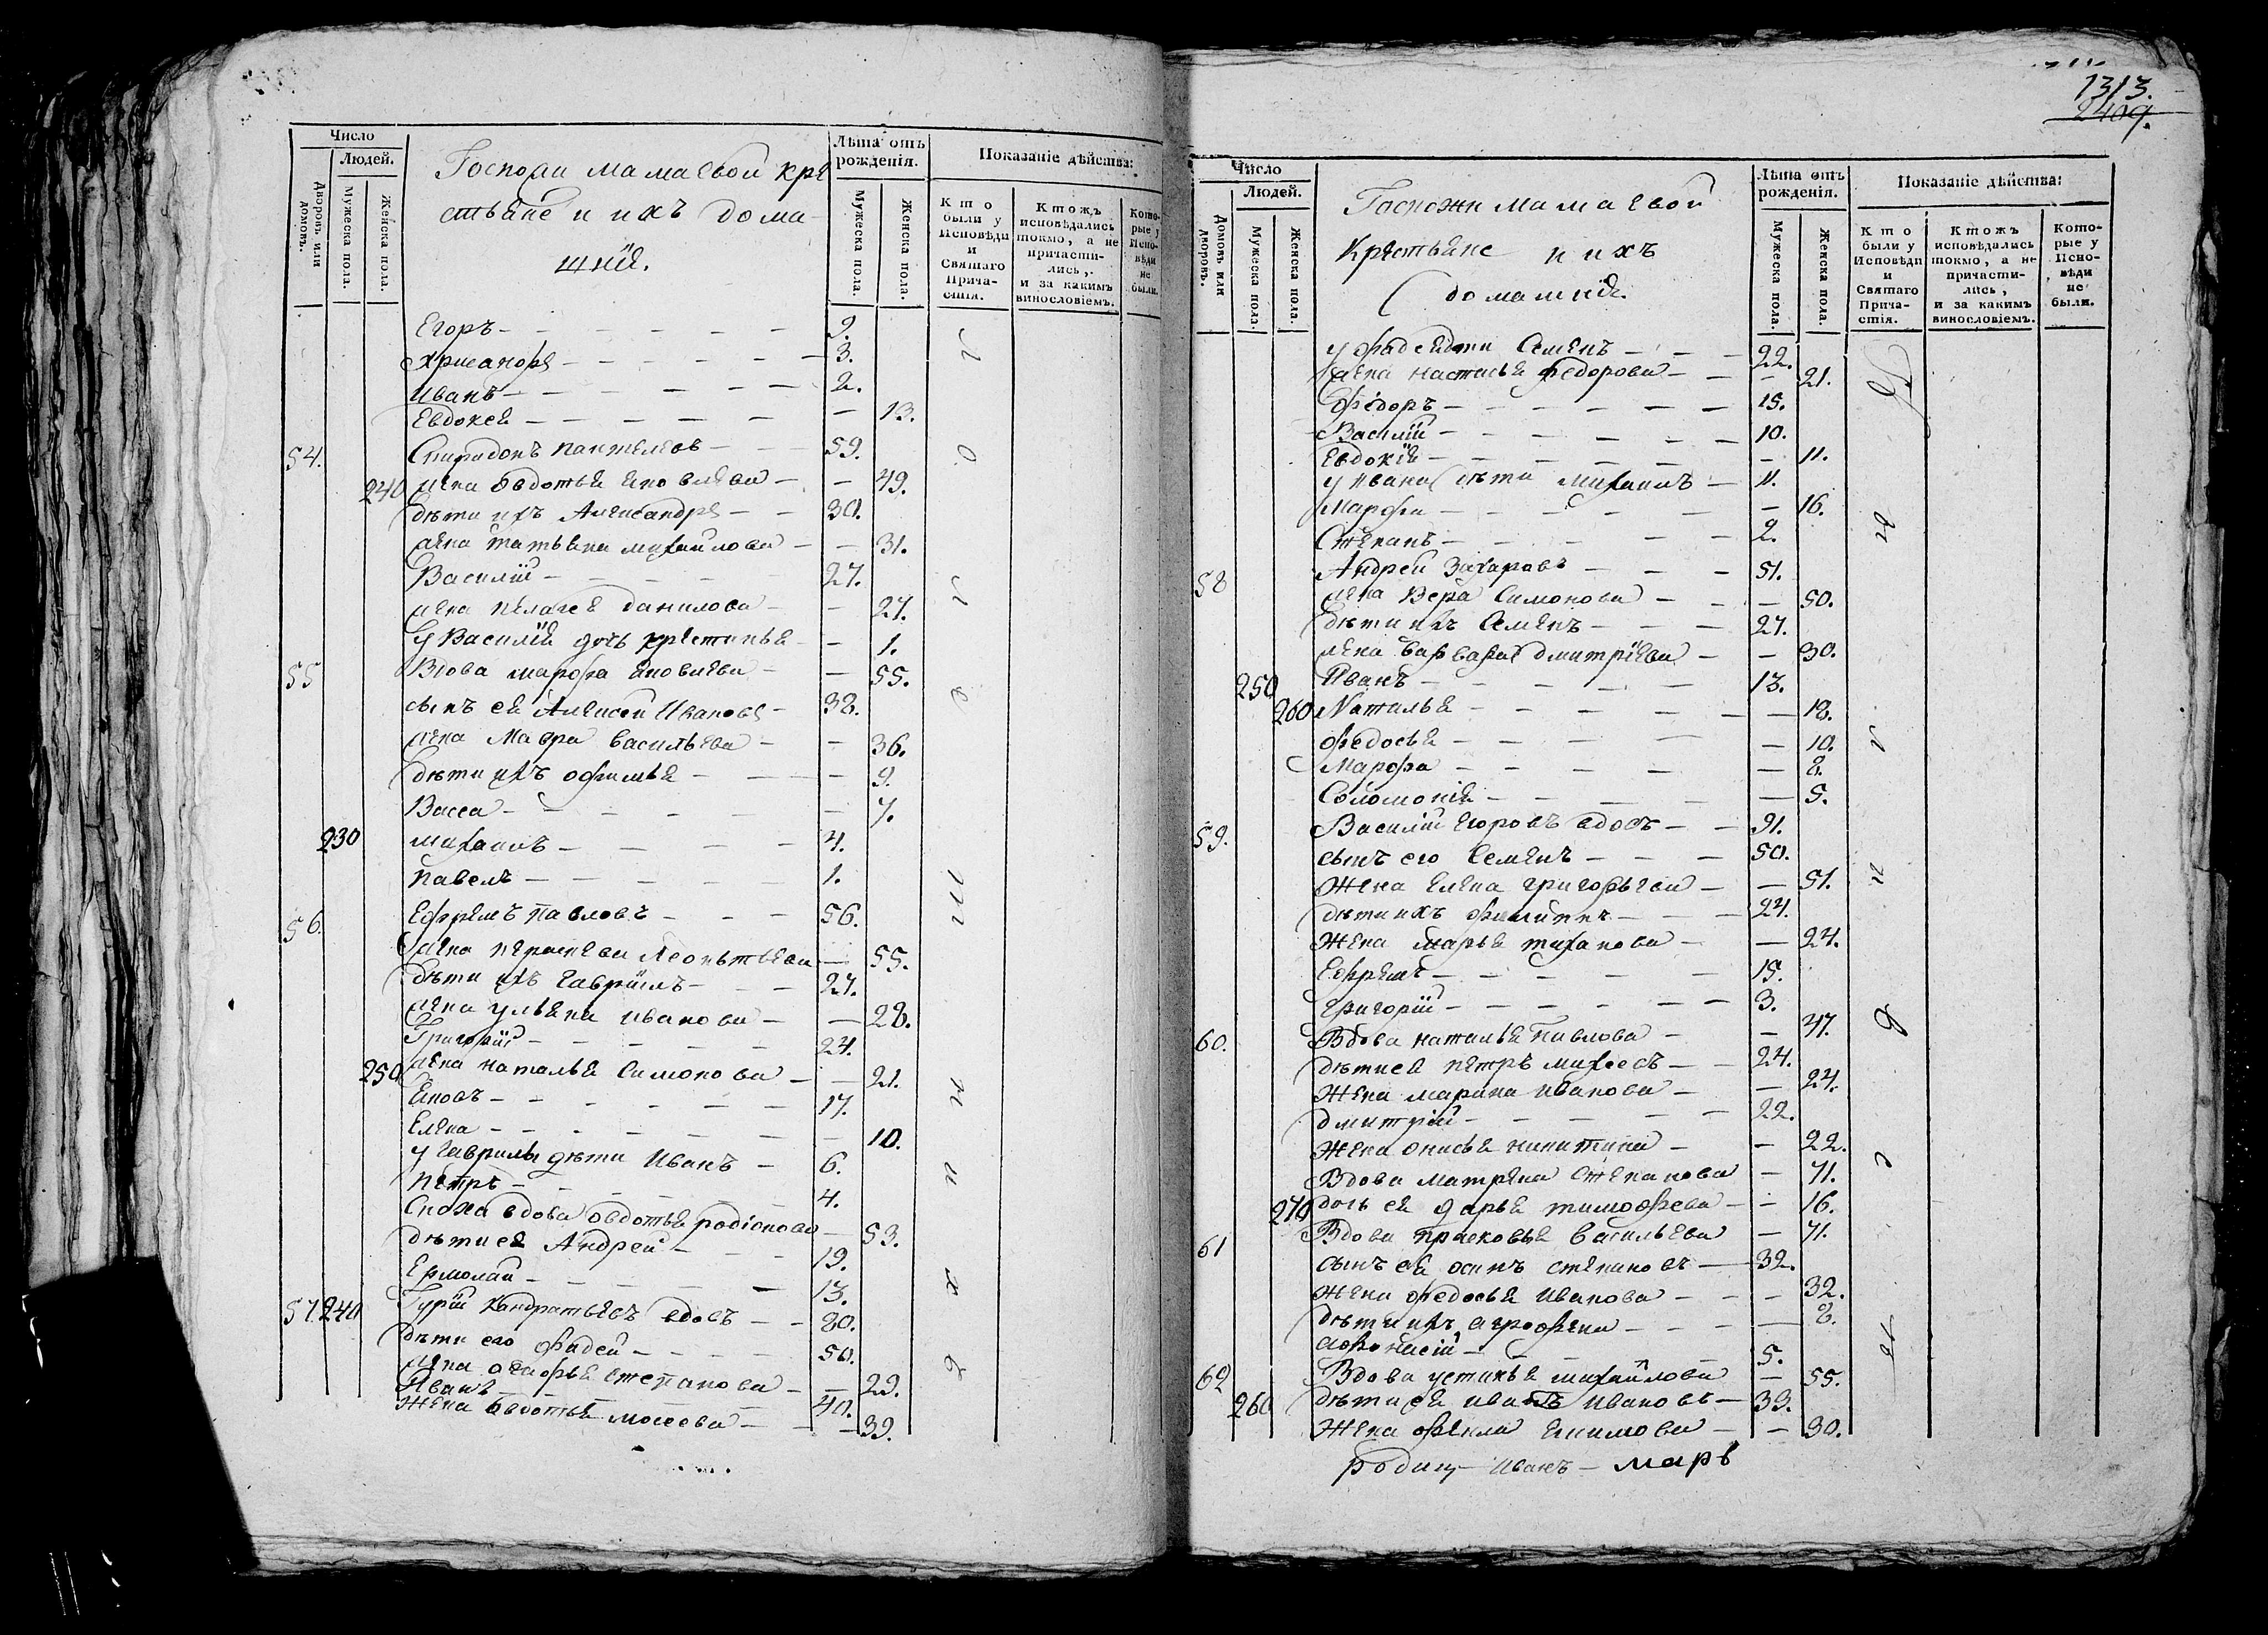 Число
Людей.
Дворовъ или домовъ.
Мужеска пола.
Женска пола.
Господи мамаевой кре
стьяне и ихъ дома
шніе.
Лѣта отъ рожденія.
Мужеска пола.
Женска пола.
Показаніе дѣйства:
Кто были у Исповѣди и Святаго Прича-стія.
Ктожъ исповѣдались токмо, а не причасти-лись, и за какимъ винословіемъ.
Кото-рые у Испо-вѣди не были.
Егоръ 9.
Хрисанфъ 3.
Иванъ 2.
Евдокея 13.
54. Спиридонъ Пантелеевъ 59.
240 жена Овдотья Яковлева 49.
дѣти ихъ Александръ 30.
жена татьяна михайлова 31.
Василій 27.
жена пелагея данилова 27.
у Василія дочь христинья 1.
55 Вдова марфа яковлева 55.
сынъ ея Алексей Ивановъ 38.
жена Мавра васильева 36.
дѣти ихъ офимья 9.
Васса 7.
230 михаилъ 4.
павелъ 1.
56. Ефремъ Павловъ 56.
жена Леонтьева 55.
дѣти ихъ гавріилъ 27.
жена ульяна иванова 28.
Григорій 24.
250 жена наталья симонова 21.
Яковъ 17.
Елена 10.
у гаврилы дѣти Иванъ 6.
петръ 4.
сноха вдова овдотья родіонова 53.
дѣти ея Андрей 19.
Ермолай 13.
57. 240 Гурій Кондратьевъ вдовъ 80.
дѣти его фадей 50.
жена агафья степанова 29.
Иванъ 40.
жена овдотья мосеева 39.
1313.
2409.
Число
Людей.
Домовъ или дворовъ.
Мужеска пола.
Женска пола.
Госпожи мамаевой
Крестьяне и ихъ
домашніе.
Лѣта отъ рожденія.
Мужеска пола.
Женска пола.
Показаніе дѣйства:
Кто были у Исповѣди и Святаго Прича-стія.
Ктожъ исповѣдались токмо, а не причасти-лись, и за какимъ винословіемъ.
Кото-рые у Испо-вѣди не были.
у фадея дѣти Семенъ 22.
жена настасья федорова 21.
федоръ 15.
Василій 10.
Евдокія 11.
у ивана дѣти михаилъ 11.
Марфа 16.
Степанъ 2.
58 Андрей Захаровъ 51.
жена Вера симонова 50.
дѣти ихъ Семенъ 27.
жена варвара дмитріева 30.
250 Иванъ 13.
260 Наталья 18.
федосья 10.
Марфа 8.
Соломонія 5.
59. Василій Егоровъ вдовъ 91.
сынъ его Семенъ 50.
жена Елена григорьева 51.
дѣти ихъ филиппъ 24.
жена марья 24.
Ефремъ 15.
григорій 3.
60. Вдова наталья Павлова 47.
дѣти ея петръ михеевъ 24.
жена марина иванова 24.
дмитрій 22.
жена анисья никитина 22.
Вдова матрена степанова 71.
270 дочь ея дарья тимофеева 16.
61 Вдова прасковья васильева 71.
сынъ ея осипъ степановъ 32.
жена федосья иванова 32.
дѣти ихъ агрофена 8.
афонасій 5.
62 Вдова устинья михайлова 55.
260 дѣти ея иванъ ивановъ 33.
жена фекла екимова 30.
иванъ марь